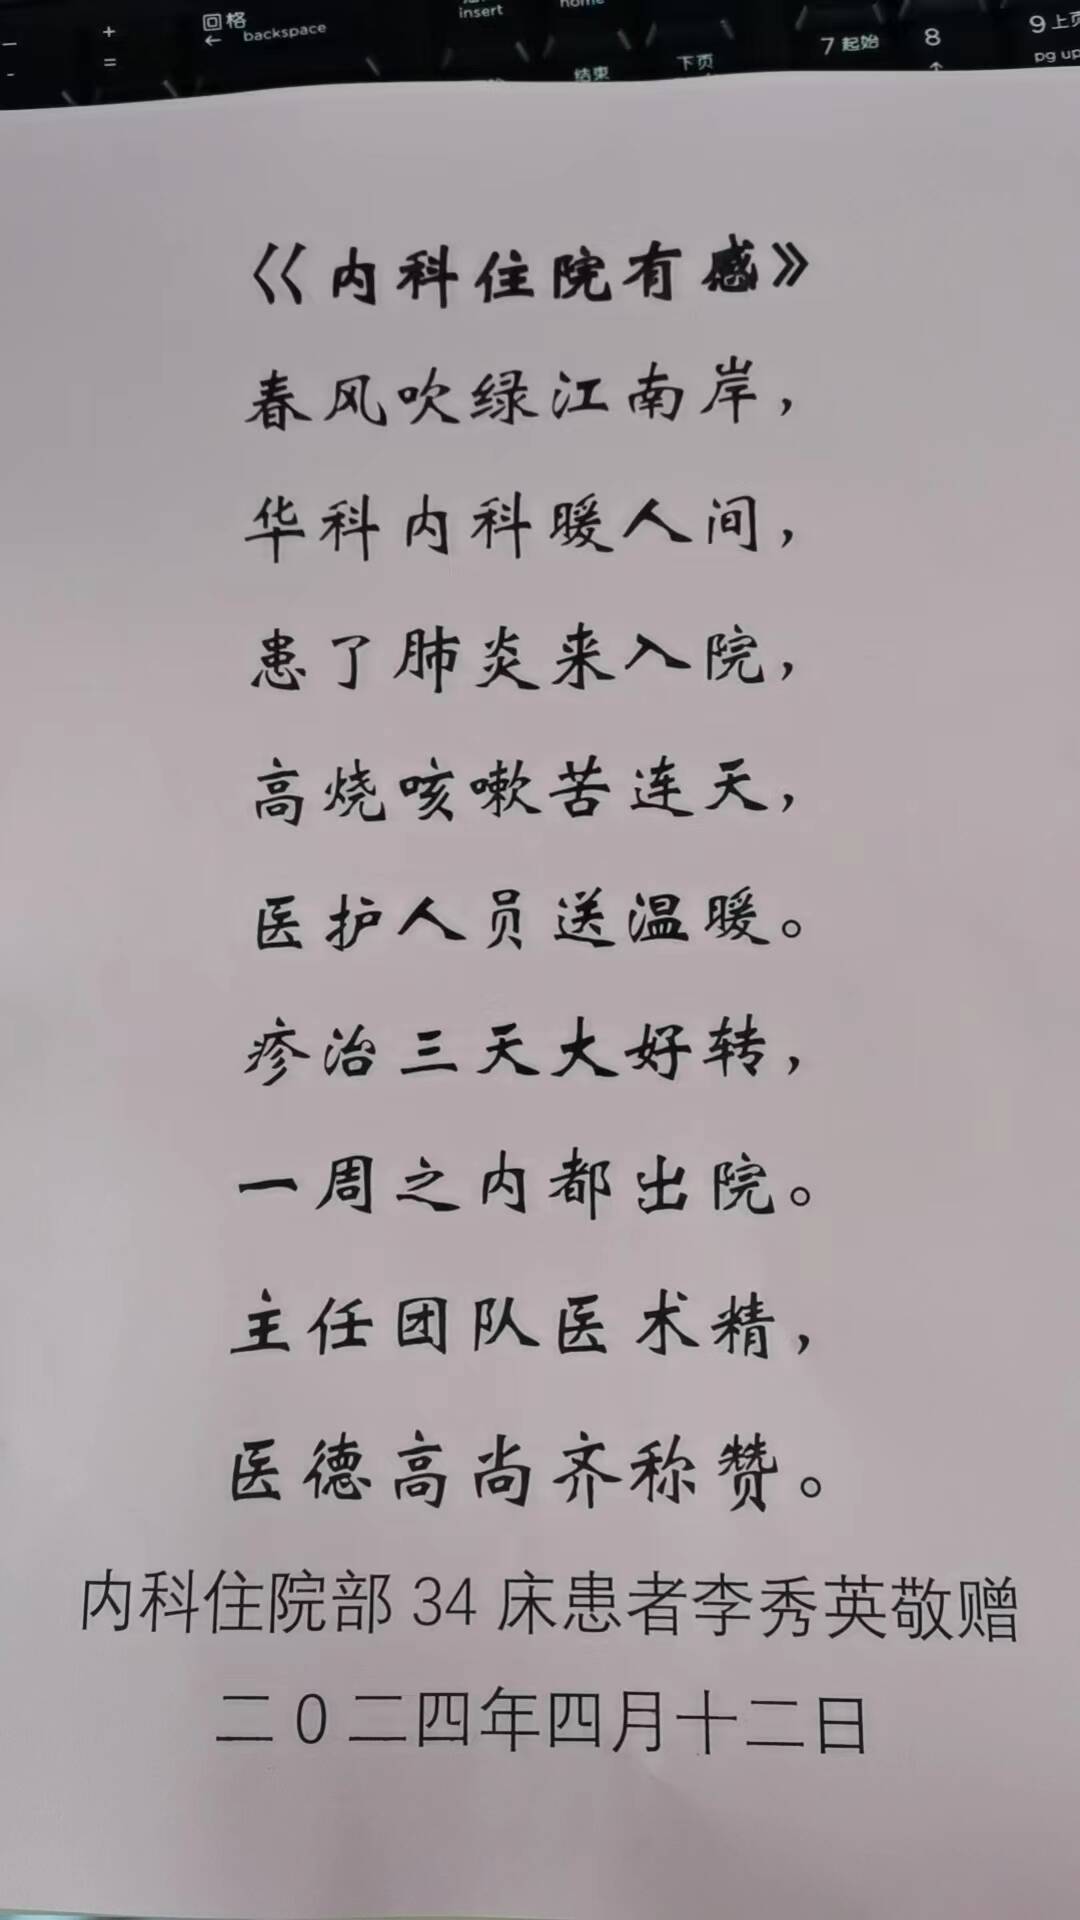 回格
← backspace
+
=
insert
home
结束
下页
7 起始
8
↑
9 上页
pg up
《内科住院有感》
春风吹绿江南岸，
华科内科暖人间，
患了肺炎来入院，
高烧咳嗽苦连天，
医护人员送温暖。
疹治三天大好转，
一周之内都出院。
主任团队医术精，
医德高尚齐称赞。
内科住院部 34 床患者李秀英敬赠
二 0 二四年四月十二日